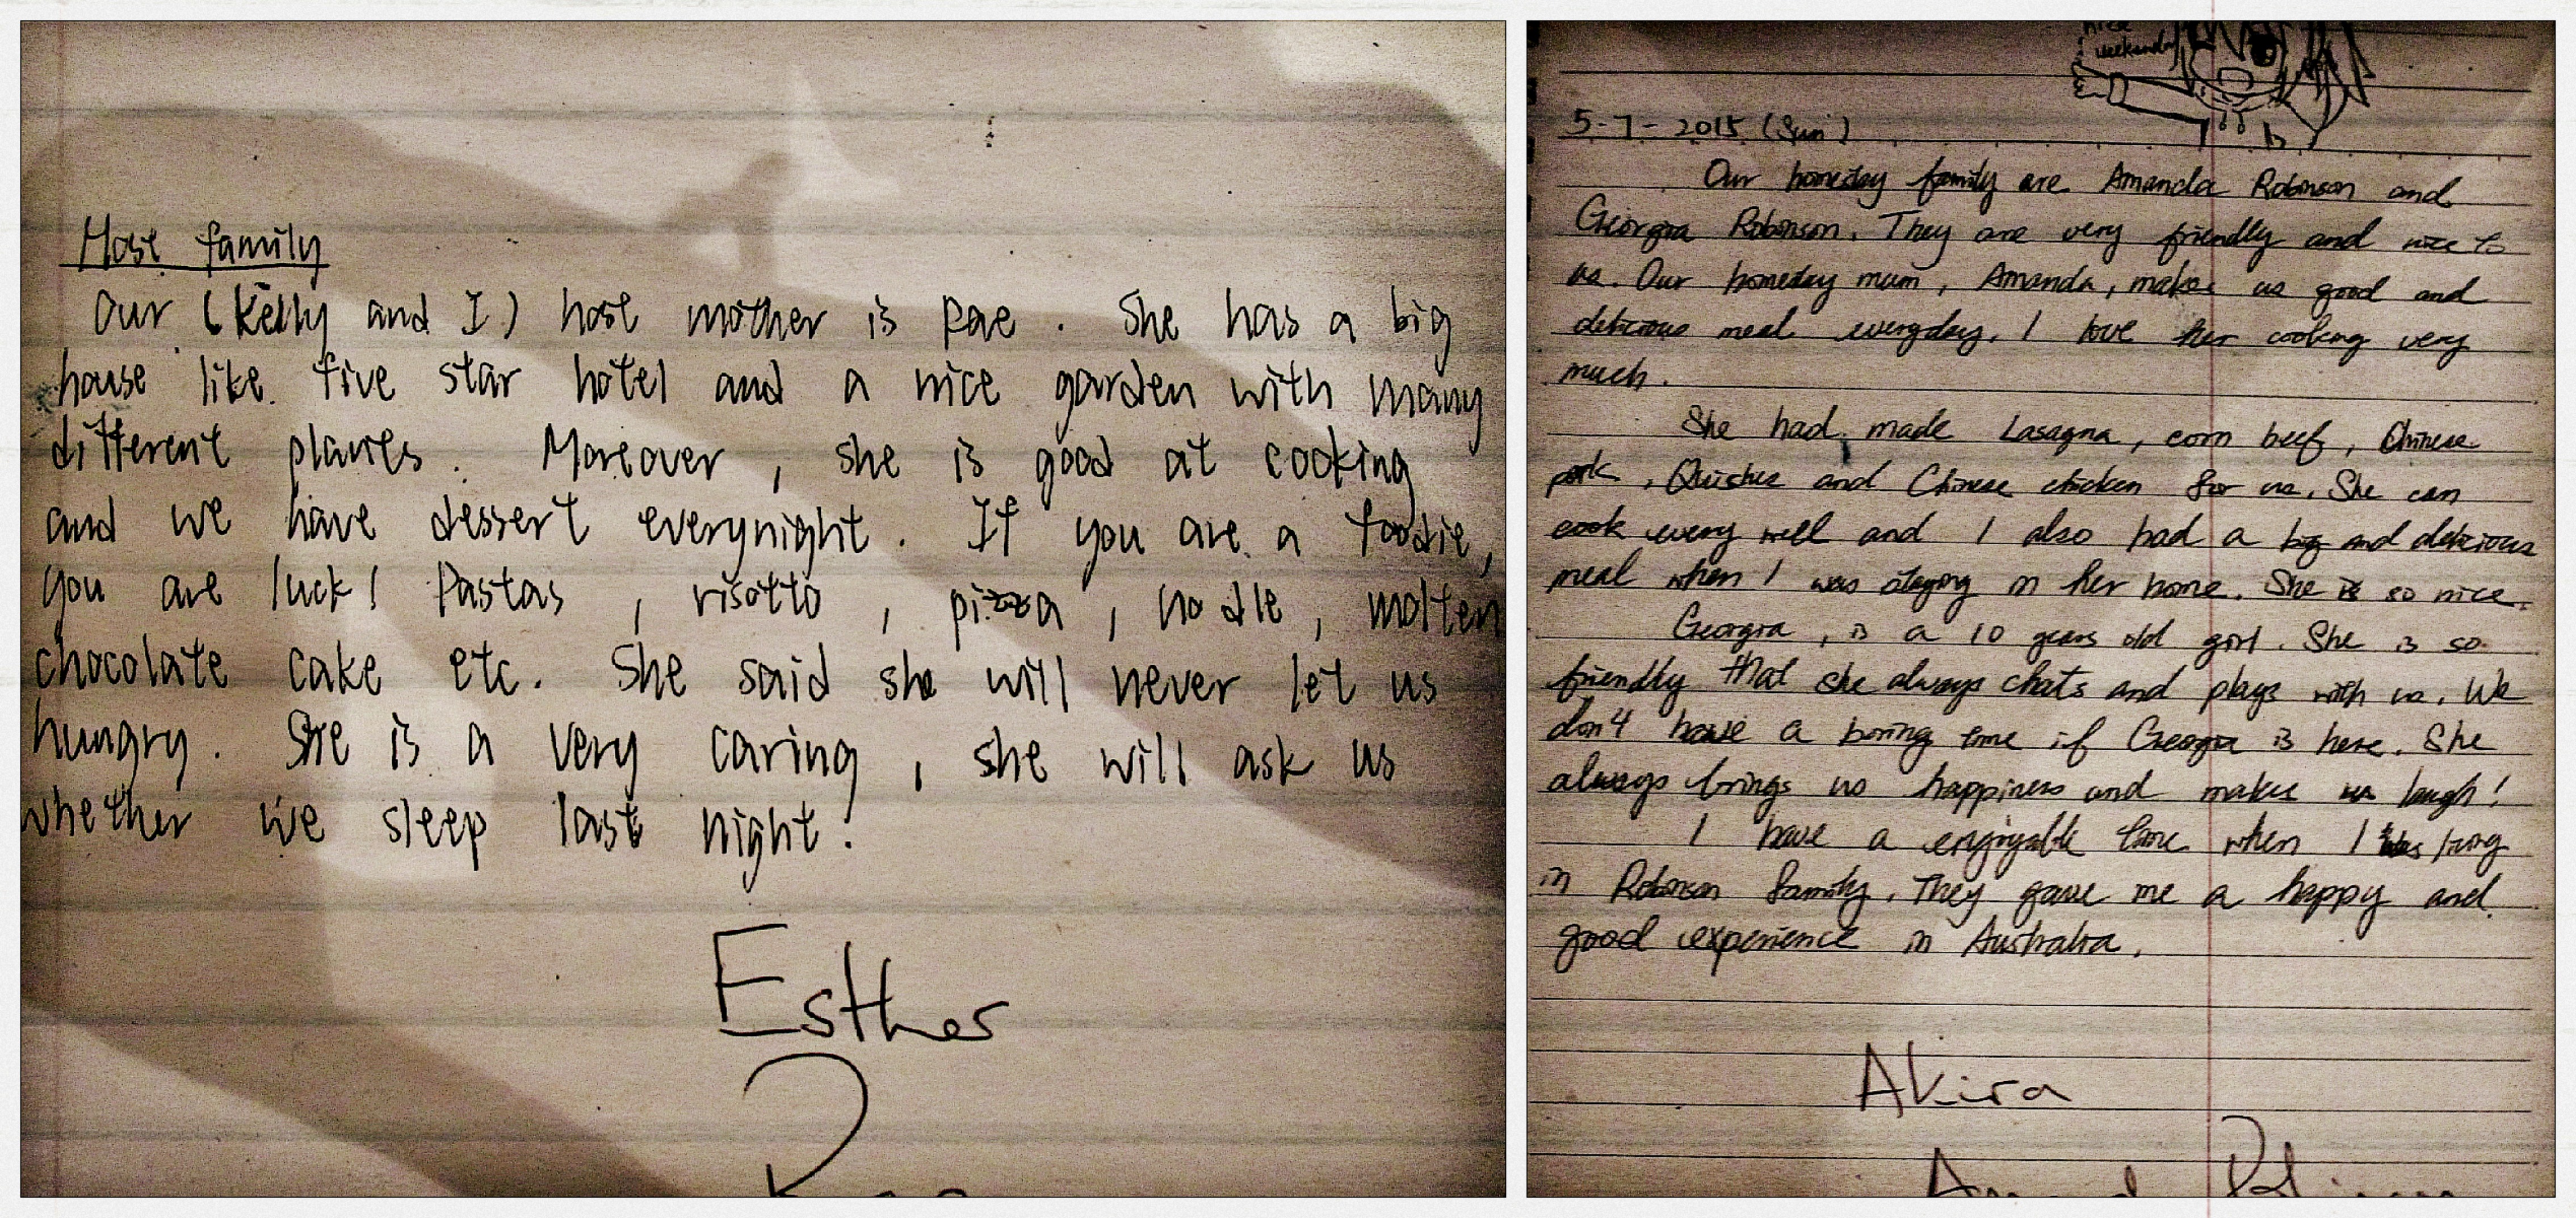 Host family
Our (Kelly and I) host mother is Rae. She has a big
house like five star hotel and a nice garden with many
different plants. Moreover, she is good at cooking
and we have dessert everynight. If you are a foodie,
you are luck! Pastas, risotto, pizza, noodle, molten
chocolate cake etc. She said she will never let us
hungry. She is a very caring, she will ask us
whether we sleep last night!
Esther
nice
weekend
5-7-2015 (Sun)
Our homestay family are Amanda Robinson and
Georgia Robinson. They are very friendly and nice to
us. Our homestay mum, Amanda, makes us good and
delicious meal everyday. I love her cooking very
much.
She had made Lasagna, corn beef, Chinese
pork, Quishes and Chinese chicken for us. She can
cook very well and I also had a big and delicious
meal when I was staying in her home. She is so nice.
Georgia, is a 10 years old girl. She is so
friendly that she always chats and plays with us. We
don't have a boring time if Georgia is here. She
always brings us happiness and makes us laugh!
I have a enjoyable time when I was living
in Robinson family. They gave me a happy and
good experience in Australia.
Akira